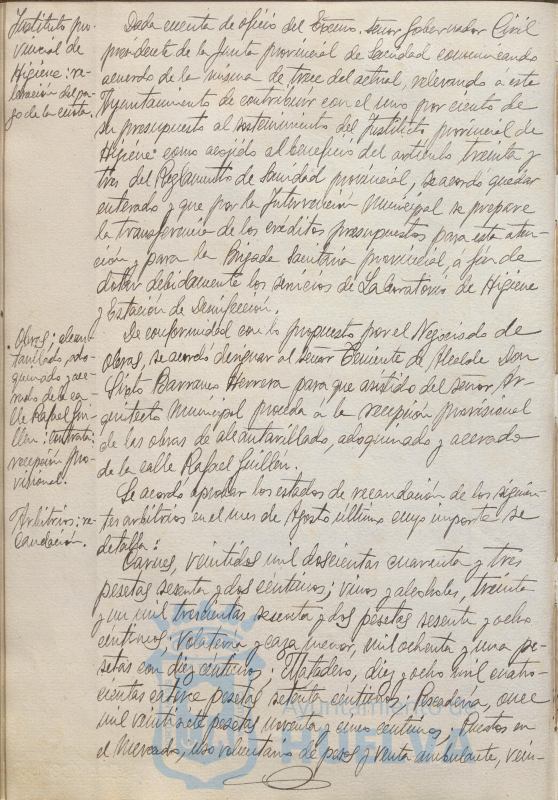 Instituto pro-
vincial de
Higiene: re-
levación del pa-
go de la cuota.
Dada cuenta de oficio del Excmo. señor Gobernador Civil
presidente de la Junta provincial de Sanidad comunicando
acuerdo de la misma de trece del actual, relevando a este
Ayuntamiento de contribuir con el uno por ciento de
su presupuesto al sostenimiento del Instituto provincial de
Higiene como acogido al beneficio del artículo treinta y
tres del Reglamento de Sanidad provincial, se acordó quedar
enterado y que por la Intervención Municipal se prepare
la transferencia de los créditos presupuestos para esta aten-
ción y para la Brigada Sanitaria provincial, a fin de
dotar debidamente los servicios de Laboratorio de Higiene
y Estación de Desinfección.
Obras; alcan-
tarillado, ado-
quinado y ace-
rado de la ca-
lle Rafael Gui-
llén: contrata:
recepción pro-
visional.
De conformidad con lo propuesto por el Negociado de
obras, se acordó designar al señor Teniente de Alcalde Don
Sixto Barranco Herrera para que asistido del señor Ar-
quitecto Municipal proceda a la recepción provisional
de las obras de alcantarillado, adoquinado y acerado
de la calle Rafael Guillén.
Arbitrios: re-
caudación.
Se acordó aprobar los estados de recaudación de los siguien-
tes arbitrios en el mes de Agosto último cuyo importe se
detalla:
Carnes, veintidos mil doscientas cuarenta y tres
pesetas sesenta y dos céntimos; vinos y alcoholes, treinta
y un mil trescientas sesenta y dos pesetas sesenta y ocho
céntimos; volatería y caza menor, mil ochenta y una pe-
setas con diez céntimos; Matadero, diez y ocho mil cuatro-
cientas catorce pesetas setenta céntimos; Pescadería, once
mil veintisiete pesetas noventa y cinco céntimos; Puestos en
el Mercado, uso voluntario de pesos y venta ambulante, vein-
Ayuntamiento de
HUELVA